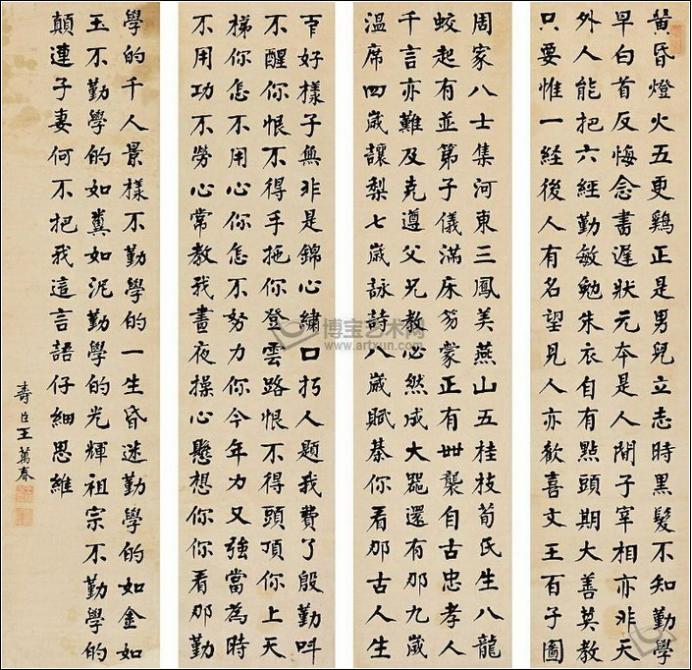 黃昏燈火五更鷄正是男兒立志時黑髮不知勤學
早白首反悔念書遲狀元本是人間子宰相亦非天
外人能把六經勤敏勉朱衣自有點頭期大善莫教
只要惟一經後人有名望見人亦歡喜文王百子圖
周家八士集河東三鳳美燕山五桂枝荀氏生八龍
蛟起有並第子儀滿床笏蒙正有世襲自古忠孝人
千言亦難及克遵父兄教必然成大器還有那九歲
溫席四歲讓梨七歲詠詩八歲賦棊你看那古人生
好樣子無非是錦心繡口朽人題我費了殷勤叫
不醒你恨不得手拖你登雲路恨不得頭頂你上天
梯你怎不用心你怎不努力你今年力又強當為時
不用功不勞心常教我晝夜操心懸想你你看那勤
學的千人景樣不勤學的一生昏迷勤學的如金如
玉不勤學的如糞如泥勤學的光輝祖宗不勤學的
顛連子妻何不把我這言語仔細思維
壽臣王萬春
博宝艺术网
www.artxun.com